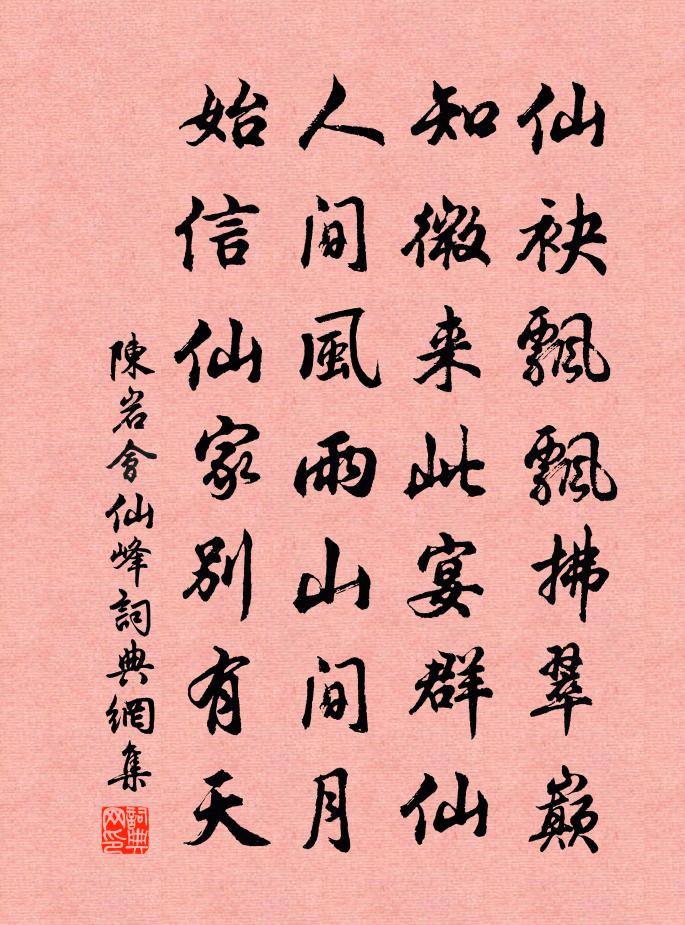 仙袂飄飄拂翠巔
知微来此宴群仙
人間風雨山間月
始信仙家別有天
陳岩會仙峰詞典網集
詞典网印